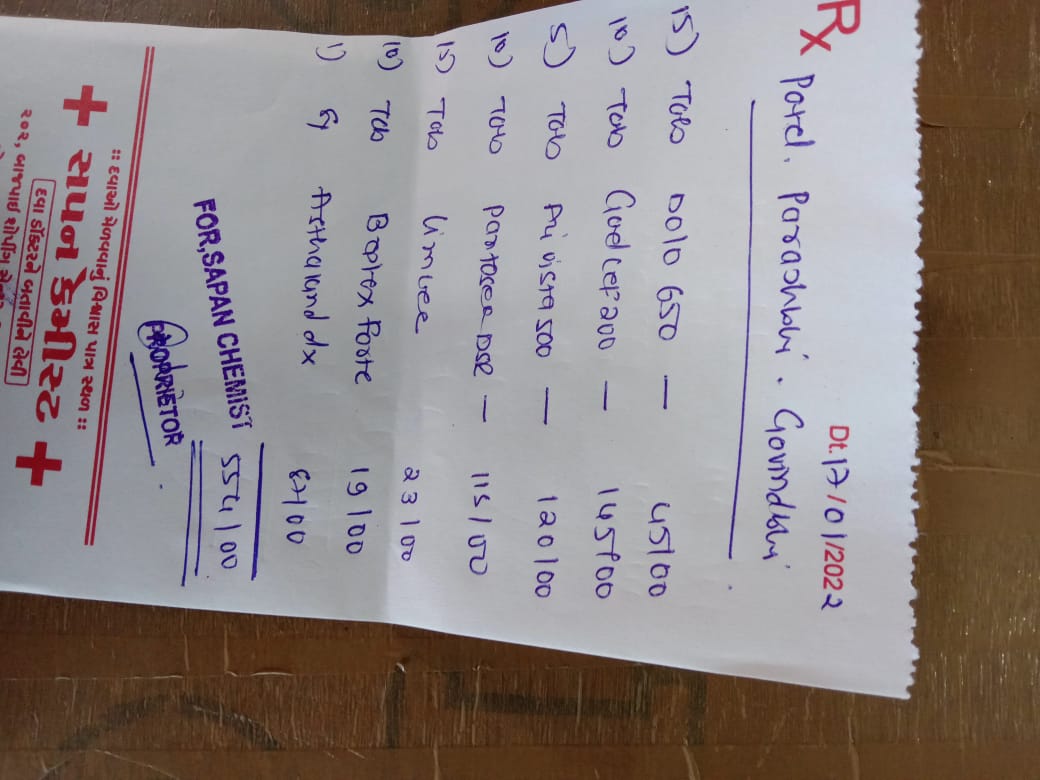 Rx
Dt. 17/01/2022
Patel. Parashbhai. Govindbhai
15) Tab Dolo 650 — 45/00
10) Tab Godcef 200 — 145/00
5) Tab Privista 500 — 120/00
10) Tab Pantocea DSR — 115/00
15) Tab Limcee 23/00
10) Tab Baplex Forte 19/00
1) Sy Asthakind dx 87/00
554/00
FOR, SAPAN CHEMIST
PROPRIETOR
:: દવાઓ મેળવવાનું વિશ્વાસ પાત્ર સ્થળ ::
+ સપન કેમીસ્ટ +
દવા ડૉક્ટરને બતાવીને લેવી
૨૦૨,